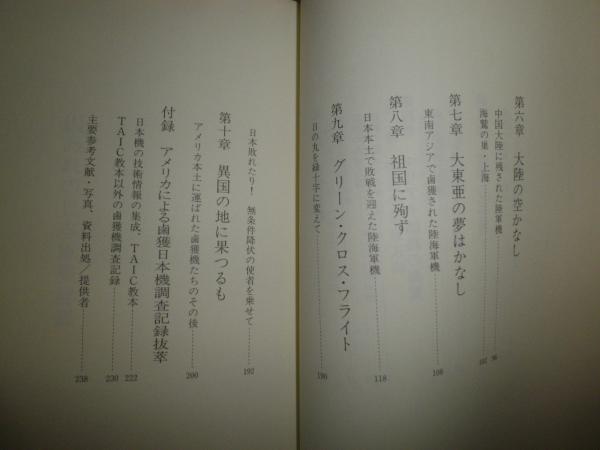 第六章 大陸の空かなし
中国大陸に残された陸軍機……96
海鷲の巣・上海……102
第七章 大東亜の夢はかなし
東南アジアで鹵獲された陸海軍機……108
第八章 祖国に殉ず
日本本土で敗戦を迎えた陸海軍機……118
第九章 グリーン・クロス・フライト
日の丸を緑十字に変えて……196
日本敗れたり! 無条件降伏の使者を乗せて……192
第十章 異国の地に果つるも
アメリカ本土に運ばれた鹵獲機たちのその後……200
付録 アメリカによる鹵獲日本機調査記録抜萃
日本機の技術情報の集成、TAIC教本……222
TAIC教本以外の鹵獲機調査記録……230
主要参考文献・写真、資料出処／提供者……238